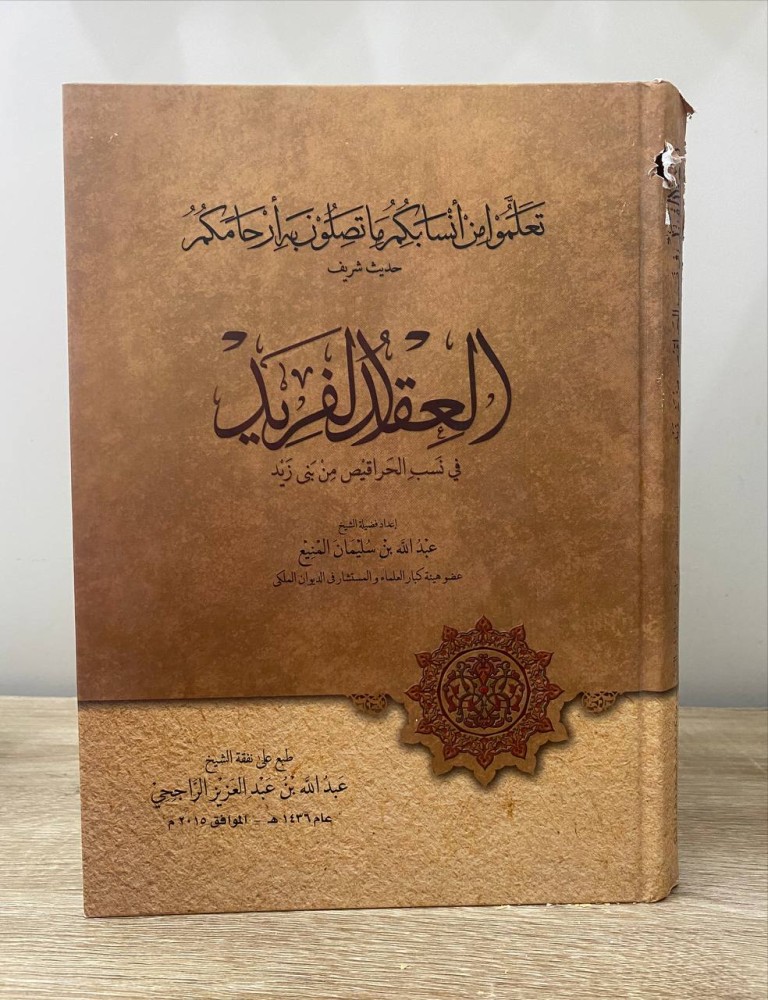 تَعَلَّمُوا مِنْ أَنْسَابِكُمْ مَا تَصِلُونَ بِهِ أَرْحَامَكُمْ
حديث شريف
العِقْدُ الفَرِيد
في نَسَبِ الحَراقيْص مِنْ بَنى زَيْد
إعداد فضيلة الشيخ
عَبْدُ اللَّه بْن سُلَيْمَان المَنِيْع
عضو هيئة كبار العلماء والمستشار في الديوان الملكي
طبع على نفقة الشيخ
عَبدُ اللَّه بْنُ عَبْد العَزيْز الرَّاجحِيْ
عام ١٤٣٦ هـ - الموافق ٢٠١٥ م